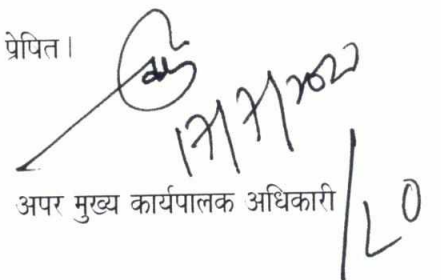 प्रेपित।
17/7/2022
अपर मुख्य कार्यपालक अधिकारी